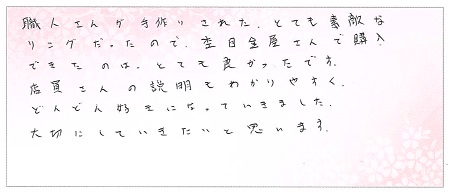 職人さんが手作りされた、とても素敵な
リングだったので、杢目金屋さんで購入
できたのは、とても良かったです。
店員さんの説明もわかりやすく、
どんどん好きになっていきました。
大切にしていきたいと思います。